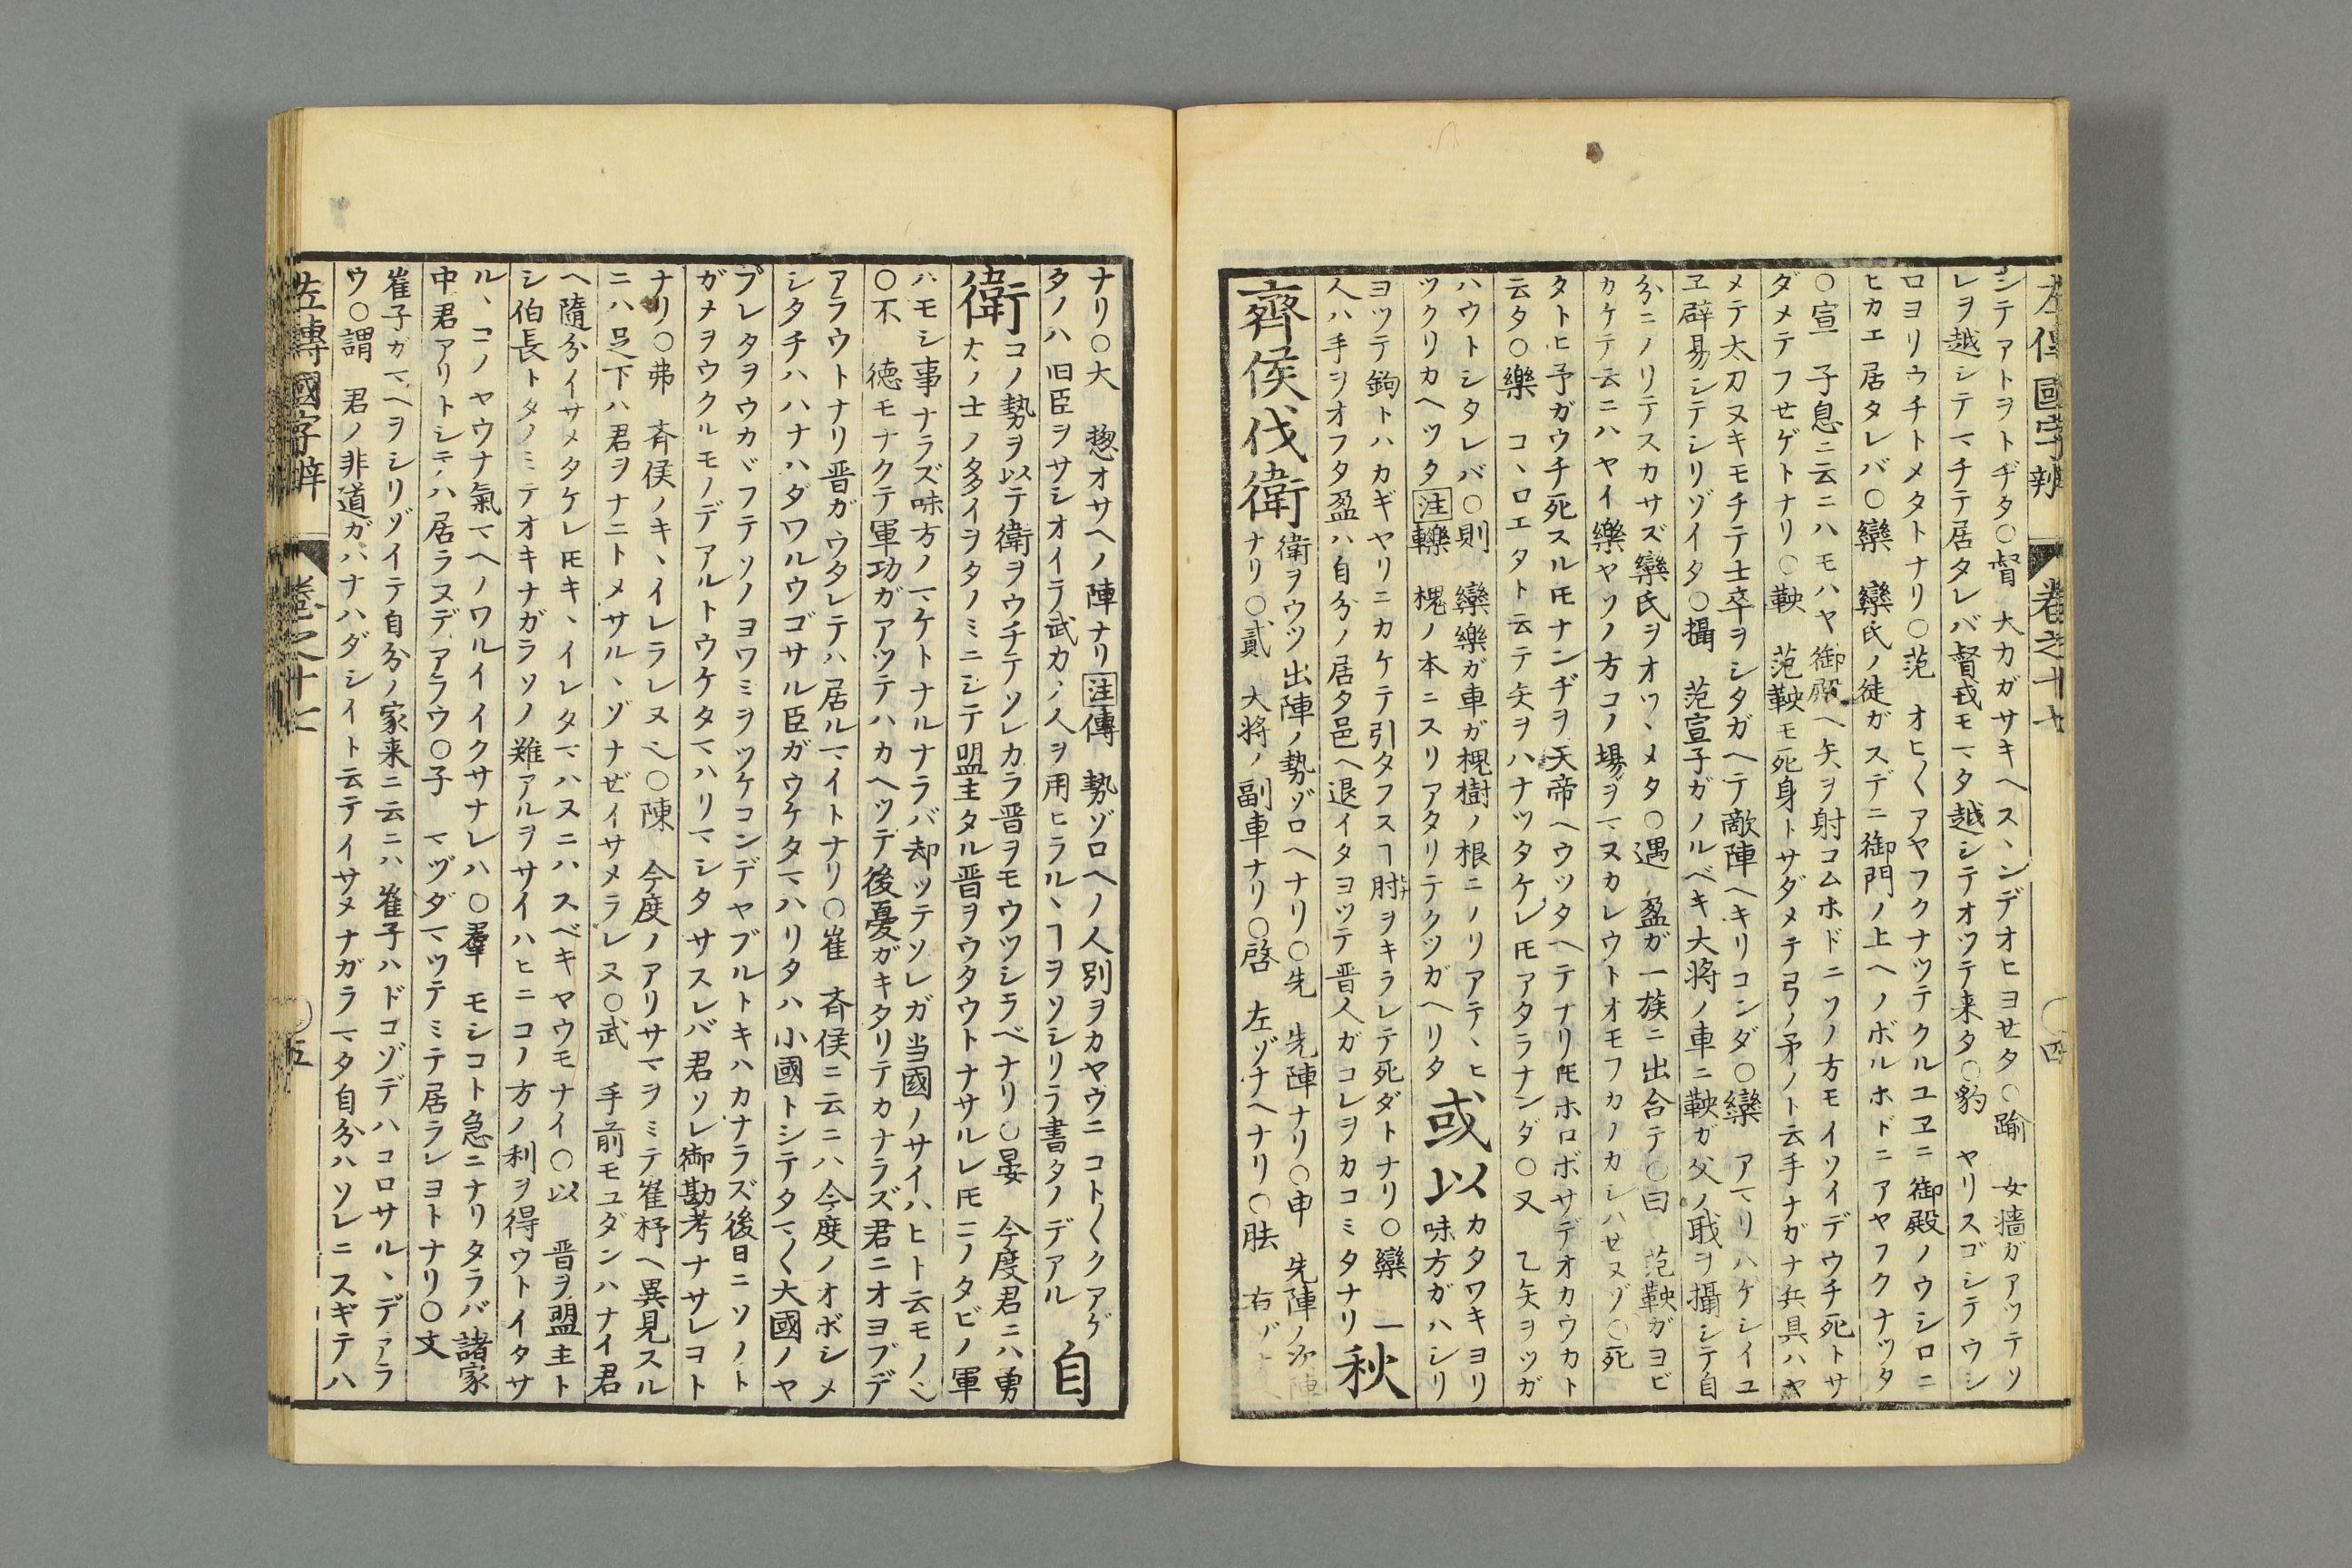 左傳國字辨 卷之十七 〇四
シテアトヲトヂタ〇督 大カガサキヘスヽンデオヒヨセタ〇踰 女墻ガアツテソ
レヲ越シテマチテ居タレバ督戎モマタ越シテオツテ来タ〇豹 ヤリスゴシテウシ
ロヨリウチトメタトナリ〇范 オヒ〱アヤフクナツテクルユヱニ御殿ノウシロニ
ヒカエ居タレバ〇欒 欒氏ノ徒ガスデニ御門ノ上ヘノボルホドニアヤフクナツタ
〇宣 子息ニ云ニハモハヤ御殿ヘ矢ヲ射コムホドニソノ方モイソイデウチ死トサ
ダメテフセゲトナリ〇鞅 范鞅モ死身トサダメテ弓ノ矛ノト云手ナガナ兵具ハヤ
メテ太刀ヌキモチテ士卒ヲシタガヘテ敵陣ヘキリコンダ〇欒 アマリハゲシイユ
ヱ辟易シテシリゾイタ〇攝 范宣子ガノルベキ大将ノ車ニ鞅ガ父ノ戝ヲ攝シテ自
分ニノリテスカサズ欒氏ヲオワヽメタ〇遇 盈ガ一族ニ出合テ〇曰 范鞅ガヨビ
カケテ云ニハヤイ樂ヤソノ方コノ場ヲマヌカレウトオモフカノカシハセヌゾ〇死
タトヒ予ガウチ死スルトモナンヂヲ天帝ヘウツタヘテナリトモホロボサデオカウカト
云タ〇樂 コヽロエタト云テ矢ヲハナツタケレトモアタラナンダ〇又 乙矢ヲツガ
ハウトシタレバ〇則 欒樂ガ車ガ槐樹ノ根ニノリアテヽヒ
ツクリカヘツタ 注 轢 槐ノ本ニスリアタリテクツガヘリタ
或以
カタワキヨリ
味方ガハシリ
ヨツテ鉤トハカギヤリニカケテ引タフスヿ肘ヲキラレテ死ダトナリ〇欒 一
人ハ手ヲオフタ盈ハ自分ノ居タ邑ヘ退イタヨツテ晋人ガコレヲカコミタナリ
秋
齊侯伐衛
衛ヲウツ出陣ノ勢ゾロヘナリ〇先 先陣ナリ〇申 先陣ノ次陣
ナリ〇貳 大将ノ副車ナリ〇啓 左ゾナヘナリ〇胠 右
ナリ〇大 惣オサヘノ陣ナリ 注 傳 勢ゾロヘノ人別ヲカヤウニコト〱クアゲ
タノハ旧臣ヲサシオイラ武力ノ人ヲ用ヒラルヽヿヲソシリラ書タノデアル
自
衛
コノ勢ヲ以テ衛ヲウチテソレカラ晋ヲモウツシラベナリ〇晏 今度君ニハ勇
力ノ士ノ多イヲタノミニシテ盟主タル晋ヲウタウトナサルレトモコノタビノ軍
ハモシ事ナラズ味方ノマケトナルナラバ却ツテソレガ当國ノサイハヒト云モノ也
〇不 徳モナクテ軍功ガアツテハカヘツテ後憂ガキタリテカナラズ君ニオヨブデ
アラウトナリ晋ガウタレテハ居ルマイトナリ〇崔 斉侯ニ云ニハ今度ノオボシメ
シタチハハナハダワルウゴサル臣ガウケタマハリタハ小國トシテタマ〱大國ノヤ
ブレタヲウカヾフテソノヨワミヲツケコンデヤブルトキハカナラズ後日ニソノト
ガメヲウクルモノデアルトウケタマハリマシタサスレバ君ソレ御勘考ナサレヨト
ナリ〇弗 斉侯ノキヽイレラレヌ也〇陳 今度ノアリサマヲミテ崔杼ヘ異見スル
ニハ足下ハ君ヲナニトメサルヽゾナゼイサメラレヌ〇武 手前モユダンハナイ君
ヘ隨分イサメタケレトモキヽイレタマハヌニハスベキヤウモナイ〇以 晋ヲ盟主ト
シ伯長トタノミテオキナガラソノ難アルヲサイハヒニコノ方ノ利ヲ得ウトイタサ
ルヽコノヤウナ氣マヘノワルイイクサナレハ〇羣 モシコト急ニナリタラバ諸家
中君アリトシテハ居ラヌデアラウ〇子 マヅダマツテミテ居ラレヨトナリ〇文
崔子ガマヘヲシリゾイテ自分ノ家来ニ云ニハ崔子ハドコゾデハコロサルヽデアラ
ウ〇謂 君ノ非道ガハナハダシイト云テイサメナガラマタ自分ハソレニスギテハ
左傳國字辨 卷之十七 〇五